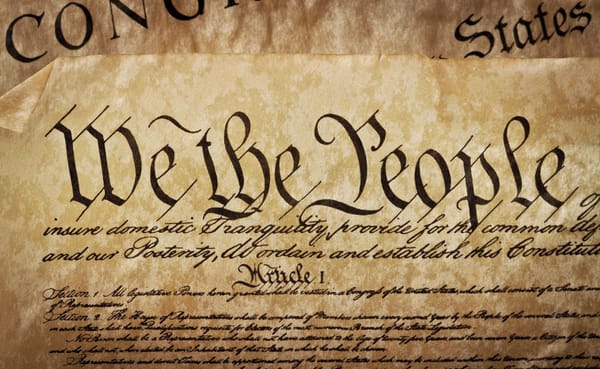 CONGR
States
We the People
insure domestic Tranquility, provide for the common def
and our Posterity, do ordain and establish this Constitut
Article I
Section 1. All legislative Powers herein granted shall be vested in a Congress of the United States, which shall consist of a Senate and
of Representatives
Section 2. The House of Representatives shall be composed of Members chosen every second Year by the People of the several States, and
in each State shall have Qualifications requisite for Electors of the most numerous Branch of the State Legislature.
No Person shall be a Representative who shall not have attained to the Age of twenty five Years, and been seven Years a Citizen of the
and who shall not, when elected, be an Inhabitant of that State in which he shall be chosen.
Representatives and direct Taxes shall be apportioned among the several States which may be included within this